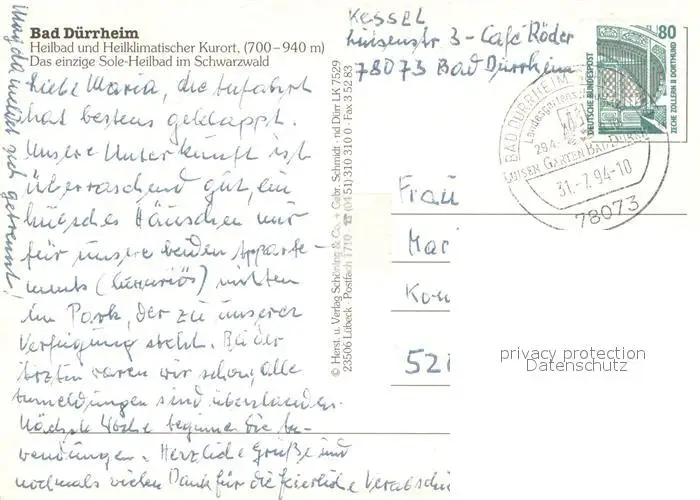 Bad Dürrheim
Heilbad und Heilklimatischer Kurort, (700–940 m)
Das einzige Sole-Heilbad im Schwarzwald
Liebe Maria, die Anfahrt
hat bestens geklappt.
Unsere Unterkunft ist
überraschend gut, ein
hübsches Häuschen nur
für unsere beiden Apparte-
ments (luxuriös) mitten
im Park, der zu unserer
Verfügung steht. Bei der
Ärztin waren wir schon, alle
Anmeldungen sind überstanden.
Nächste Woche beginnen die An-
wendungen. Herzliche Grüße und
nochmals vielen Dank für die feierliche Verabschie
Magda meldet sich getrennt!
© Herst. u. Verlag Schöning & Co. + Gebr. Schmidt · nd Dürr LK 7529
23506 Lübeck · Postfach 1710 ☎ (0451) 310 310 0 · Fax 3 52 83
KESSEL
Luisenstr 3 - Café Röder
78073 Bad Dürrheim
80
DEUTSCHE BUNDESPOST
ZECHE ZOLLERN II DORTMUND
BAD DÜRRHEIM
Landesgartenschau
29.4.
LUISEN GARTEN BAD DÜRRH
31.-7.94-10
78073
Frau
Mar
Kon
521
privacy protection
Datenschutz